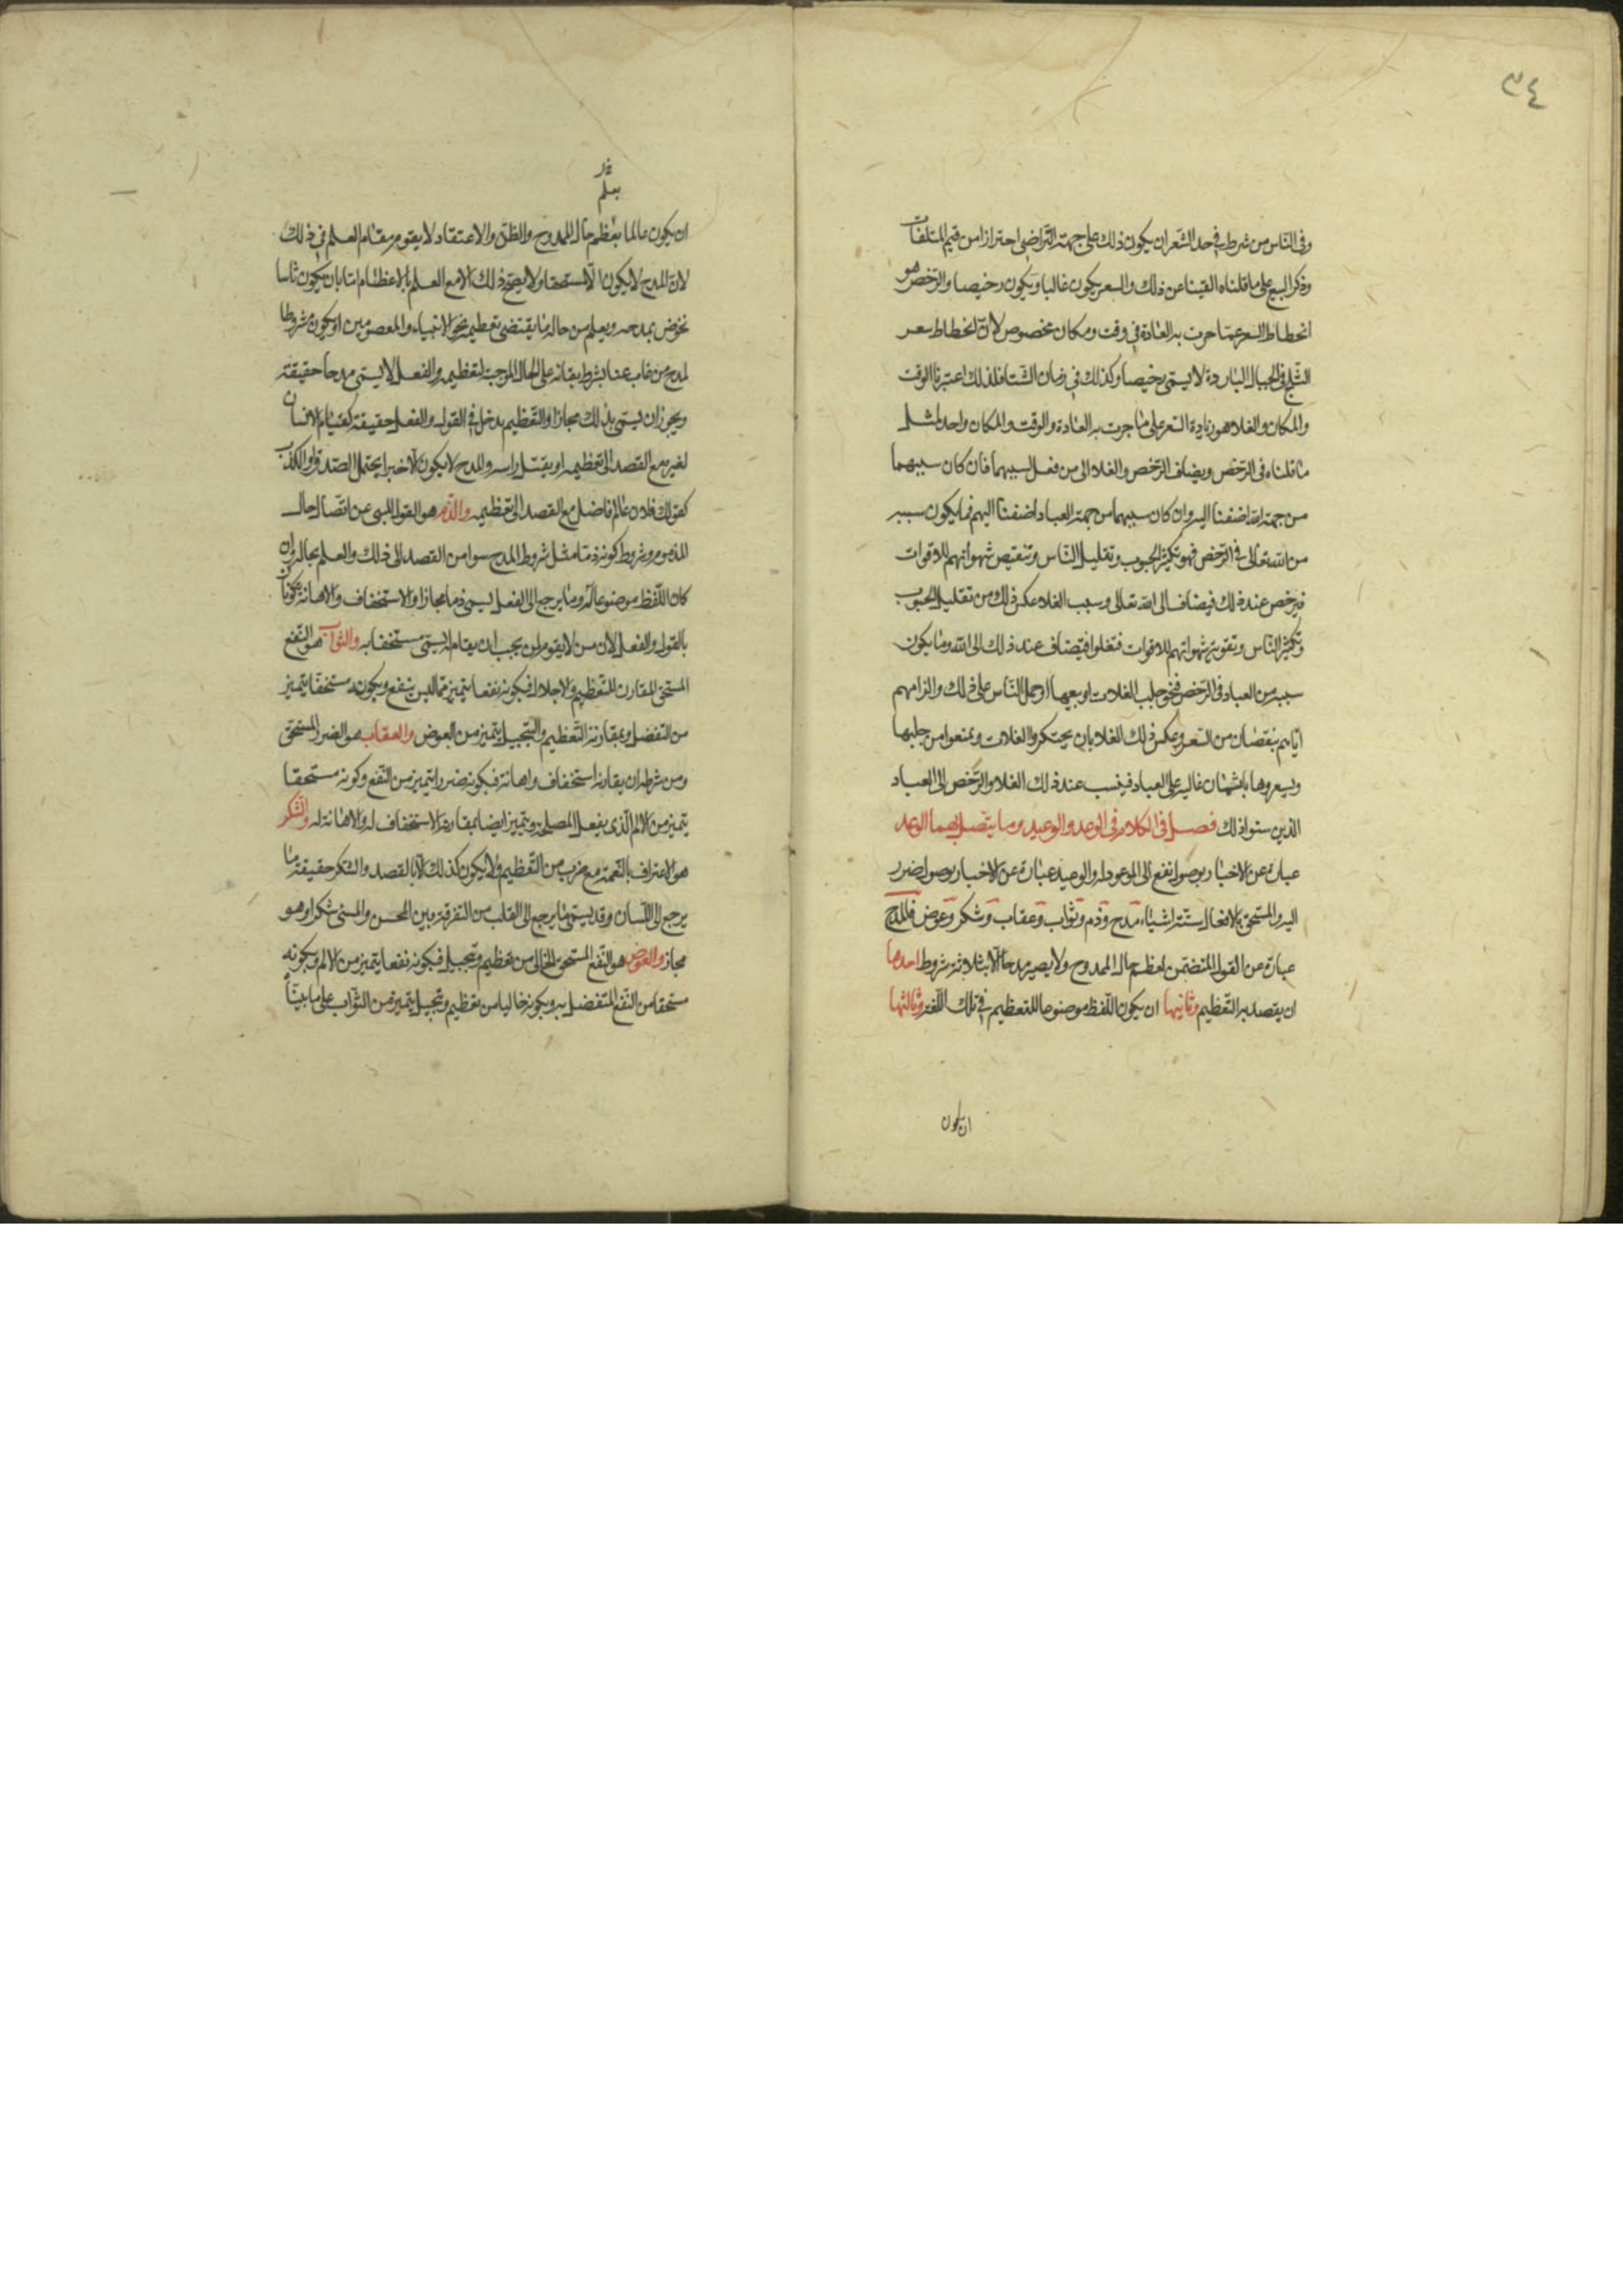 ٣٤
وفي الناس من شرط في حد السعر ان يكون ذلك على جهة التراضي احترازا من قيم المتلفات
وذكر البيع على ما قلناه القينا عن ذلك والسعر يكون غاليا ويكون رخيصا والرخص هو
انحطاط السعر عما جرت به العادة في وقت ومكان مخصوص لان انحطاط سعر
الثلج في الجبال الباردة لا يسمى رخيصا وكذلك في زمان الشتا فلذلك اعتبرنا الوقت
والمكان والغلا هو زيادة السعر على ما جرت به العادة والوقت والمكان واحد لمثل
ما قلناه في الرخص ويضاف الرخص والغلا الى من فعل سببهما فان كان سببهما
من جهة الله اضفنا اليه وان كان سببهما من جهة العباد اضفنا اليهم فما يكون سببه
من الله تعالى في الرخص فهو تكثير الحبوب وتقليل الناس وتنقيص شهواتهم للاقوات
فيرخص عند ذلك فيضاف الى الله تعالى وسبب الغلا عكس ذلك من تقليل الحبوب
وتكثير الناس وتقوية شهواتهم للاقوات فتغلوا فيضاف عند ذلك الى الله وما يكون
سببه من العباد في الرخص فنحو جلب الغلات او بيعها او حمل الناس على ذلك والزامهم
اياهم بنقصان من السعر وعكس ذلك الغلا بان يحتكروا الغلات ويمنعوا من جلبها
ويسعروها باثمان غالية على العباد فينسب عند ذلك الغلا والرخص الى العباد
الذين سنوا ذلك فصل في الكلام في الوعد والوعيد وما يتصل بهما الوعد
عبارة عن الاخبار بوصول نفع الى الموعود له والوعيد عبارة عن الاخبار بوصول ضرر
اليه والمستحق بالافعال ستة اشياء مدح وذم وثواب وعقاب وشكر وعوض فالمدح
عبارة عن القول المتضمن لعظم حال الممدوح ولا يصير مدحا الا بثلاثة شروط احدها
ان يقصد به التعظيم وثانيها ان يكون اللفظ موضوعا للتعظيم في تلك اللغة وثالثها
ان يكون
يعلم
ان يكون عالما بعظم حال الممدوح والظن والاعتقاد لا يقوم مقام العلم في ذلك
لان المدح لا يكون الا مستحقا ولا يصح ذلك الا مع العلم بالاعظام اما بان يكون ثابتا
نخوض بمدحه ويعلم من حاله ما يقتضي تعظيمه نحو الانبياء والمعصومين او يكون مشروطا
لمدح من غاب عنا بشرط بقائه على الحال الموجبة لتعظيمه والفعل لا يسمى مدحا حقيقة
ويجوز ان يسمى بذلك مجازا والتعظيم يدخل في القول والفعل حقيقة كقيام الانسان
لغيره مع القصد الى تعظيمه او يقبل راسه والمدح لا يكون الا خبرا يحتمل الصدق او الكذب
كقولك فلان عالم فاضل مع القصد الى تعظيمه والذم هو القول المنبي عن اتضاع حال
المذموم وشروط كونه ذما مثل شروط المدح سوا من القصد الى ذلك والعلم بحاله وان
كان اللفظ موضوعا له وما يرجع الى الفعل يسمى ذما مجازا والاستخفاف والاهانة يكونان
بالقول والفعل لان من لا يقوم لمن يجب ان يقام له يسمى مستخفا به والثواب هو النفع
المستحق المقارن للتعظيم والاجلال فبكونه نفعا يتميز مما ليس بنفع وبكونه مستحقا يتميز
من التفضل وبمقارنة التعظيم والتبجيل يتميز من العوض والعقاب هو الضرر المستحق
ومن شرطه ان يقارنه استخفاف واهانة فبكونه ضررا يتميز من النفع وكونه مستحقا
يتميز من الالم الذي يفعل للمصلحة ويتميز ايضا بمقارنة الاستخفاف له والاهانة له والشكر
هو الاعتراف بالنعمة مع ضرب من التعظيم ولا يكون كذلك الا بالقصد والشكر حقيقة ما
يرجع الى اللسان وقد يسمى ما يرجع الى القلب من التفرقة بين المحسن والمسئ شكرا وهو
مجاز والعوض هو النفع المستحق الخالى من تعظيم وتبجيل فبكونه نفعا يتميز من الالم وبكونه
مستحقا من النفع المتفضل به وبكونه خاليا من تعظيم وتبجيل يتميز من الثواب على ما بيناه